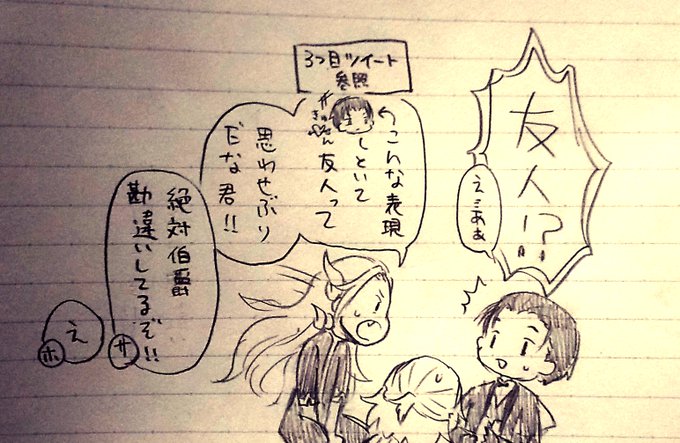 友人!?
え…ああ
3つ目ツイート
参照
こんな表現
しといて
友人って
思わせぶり
だな君!!
絶対伯爵
勘違いしてるぞ!!
サ
え
ホ